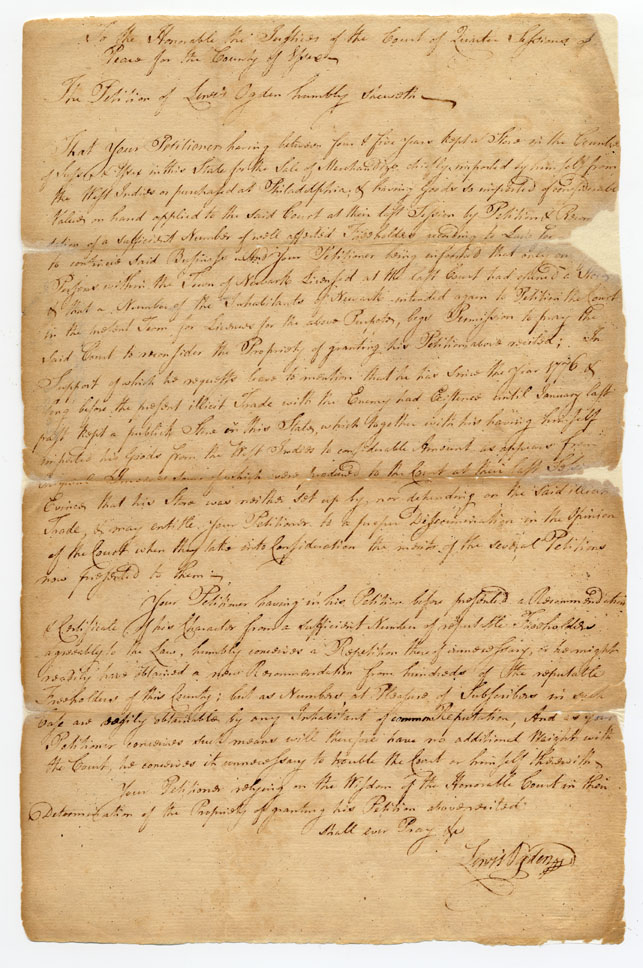 To the Honorable the Justices of the Court of Quarter Sessions of
Peace for the County of Essex
The Petition of Lewis Ogden humbly Sheweth
That Your Petitioner having between four & five Years kept a Store in the Counties
of Sussex & Essex in this State for the Sale of Merchandize chiefly imported by himself from
the West Indies or purchased at Philadelphia; & having Goods so imported of considerable
Value on hand applied to the said Court at their last Session by Petition &
of a Sufficient Number of well affected Freeholders
to continue said Business. Your Petitioner being informed that only
Persons within the Town of Newark Licensed at the last Court had opened a Store
& that a Number of the Inhabitants of Newark intended again to Petition the Court
in the present Term for Licenses for the above Purpose, begs Permission to pray the
said Court to reconsider the Propriety of granting his Petition above recited; In
Support of which he requests leave to mention that he has Since the Year 1776 &
long before the present illicit Trade with the Enemy had Existence until January last
past kept a publick Store in this State, which together with his having himself
imported his Goods from the West Indies to considerable Amount as appears from
some of which were produced to the Court at their last
Evince that his Store was neither set up by, nor depending on the Said illicit
Trade, & may entitle Your Petitioner to a proper Discrimination in the Opinion
of the Court when they take into Consideration the merits of the several Petitions
now presented to them
Your Petitioner having in his Petition before presented a Recommendation
& Certificate of his Character from a Sufficient Number of reputable Freeholders
agreeably to the Law, humbly conceives a Repetition thereof unnecessary, as he might
readily have obtained a new Recommendation from hundreds of the reputable
Freeholders of this County; but as Numbers at Pleasure of Subscribers in such
case are easily obtainable by any Inhabitant of common Reputation, And as your
Petitioner conceives such means will therefore have no additional Weight with
the Court, he conceives it unnecessary to trouble the Court or himself therewith
Your Petitioner relying on the Wisdom of the Honorable Court in their
Determination of the Propriety of granting his Petition above recited
Shall ever Pray &c
Lewis Ogden